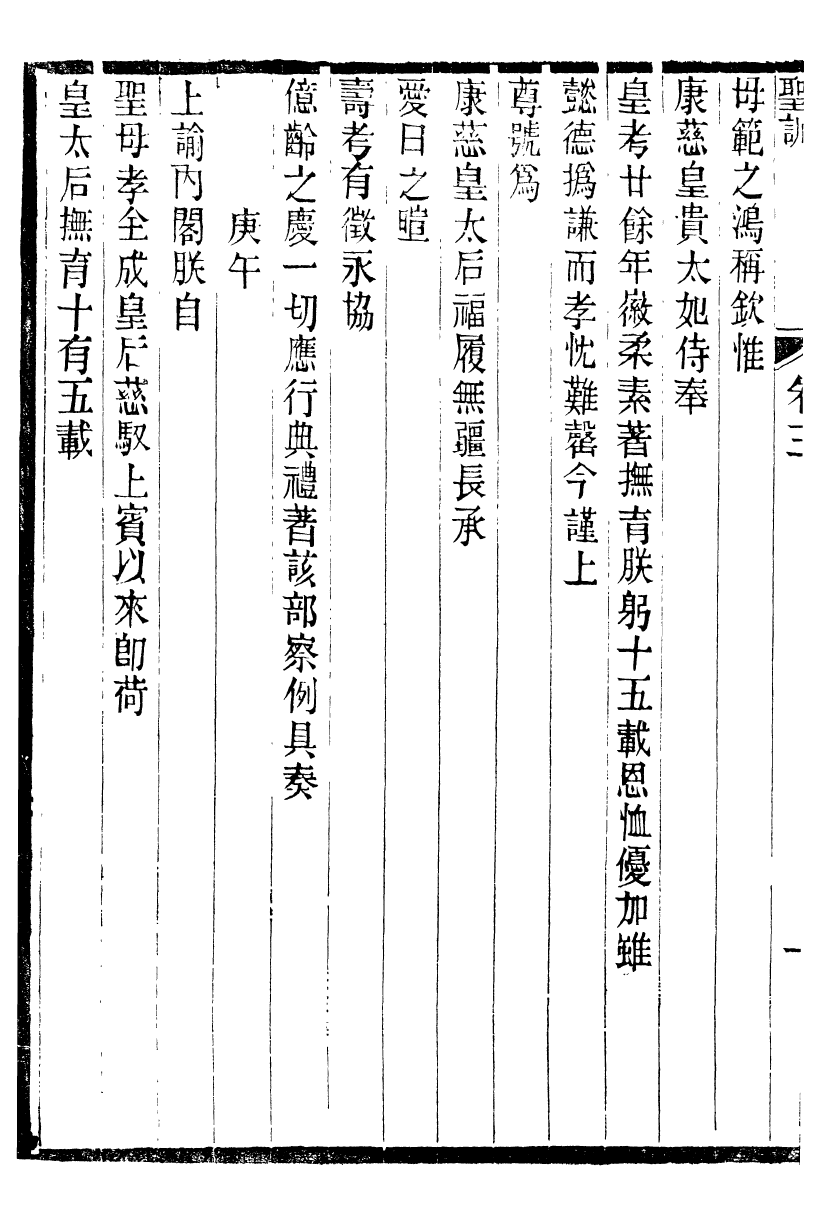 聖訓 卷三 一
母範之鴻稱欽惟
康慈皇貴太妃侍奉
皇考廿餘年徽柔素著撫育朕躬十五載恩恤優加雖
懿德撝謙而孝忱難罄今謹上
尊號爲
康慈皇太后福履無疆長承
愛日之暄
壽考有徵永協
億齡之慶一切應行典禮著該部察例具奏
庚午
上諭內閣朕自
聖母孝全成皇后慈馭上賓以來卽荷
皇太后撫育十有五載